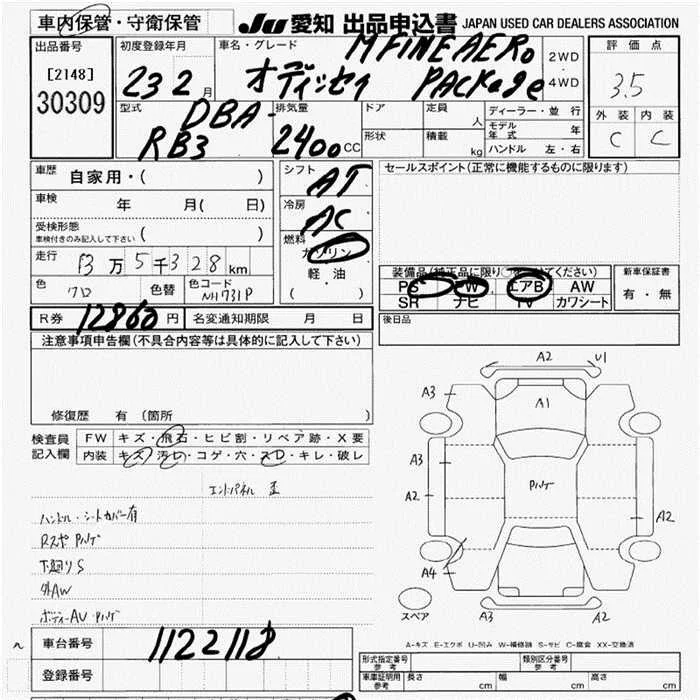 車内保管・守衛保管 JU 愛知 出品申込書 JAPAN USED CAR DEALERS ASSOCIATION
出品番号 初度登録年月 車名・グレード M FINE AERO 2WD 評価点
[2148] 23 2 月 オデッセイ PACKage 4WD 3.5
30309 型式 DBA- 排気量 ドア 定員 人 ディーラー・並行 外装 内装
RB3 2400 CC 形状 積載 kg モデル年式 年 C C
ハンドル 左・右
車歴 自家用・( ) シフト AT セールスポイント(正常に機能するものに限ります)
車検 年 月( 日) 冷房 AC
受検形態 車検付きのみ記入して下さい ( ) 燃料 ガソリン
走行 13万5千328km 軽油
装備品(補正品に限り○をつけてください) 新車保証書
色 クロ 色替 色コード NH731P ( ) PS PW エアB AW 有・無
SR ナビ TV カワシート
R券 12860円 名変通知期限 月 日 後日品
注意事項申告欄(不具合内容等は具体的に記入して下さい)
修復歴 有(箇所 )
検査員記入欄 FW キズ・飛石・ヒビ割・リペア跡・X要
内装 キズ・汚レ・コゲ・穴・スレ・キレ・破レ
エンドパネル 歪
ハンドル・シートカバー有
RスペPバンク
下廻りS
外AW
A2 U1
A3 A1
A3
A2 A2
A4
スペア A3 A2
A-キズ E-エクボ U-凹み W-補修跡 S-サビ C-腐食 XX-交換済
車台番号 1122118
登録番号
形式指定番号 参考 類別区分番号 参考
車庫証明用 参考 長さ cm 幅 cm 高さ cm